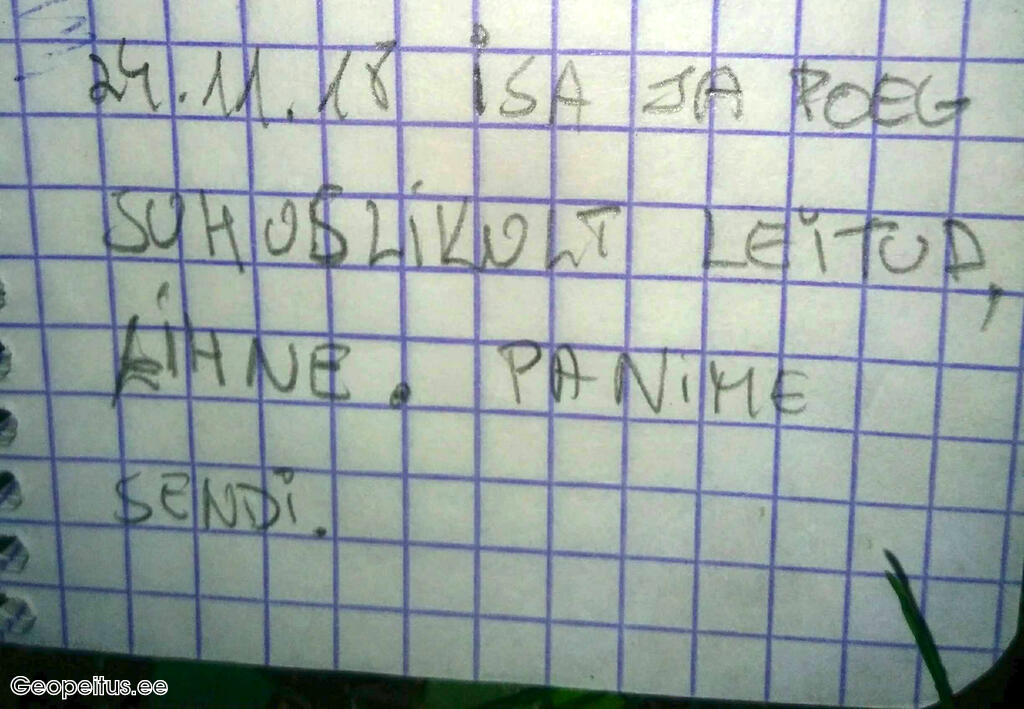 24.11.18 İSA JA POEG
JUHUSLİKULT LEİTUD,
LİHNE. PANİME
SENDİ.
Geopeitus.ee